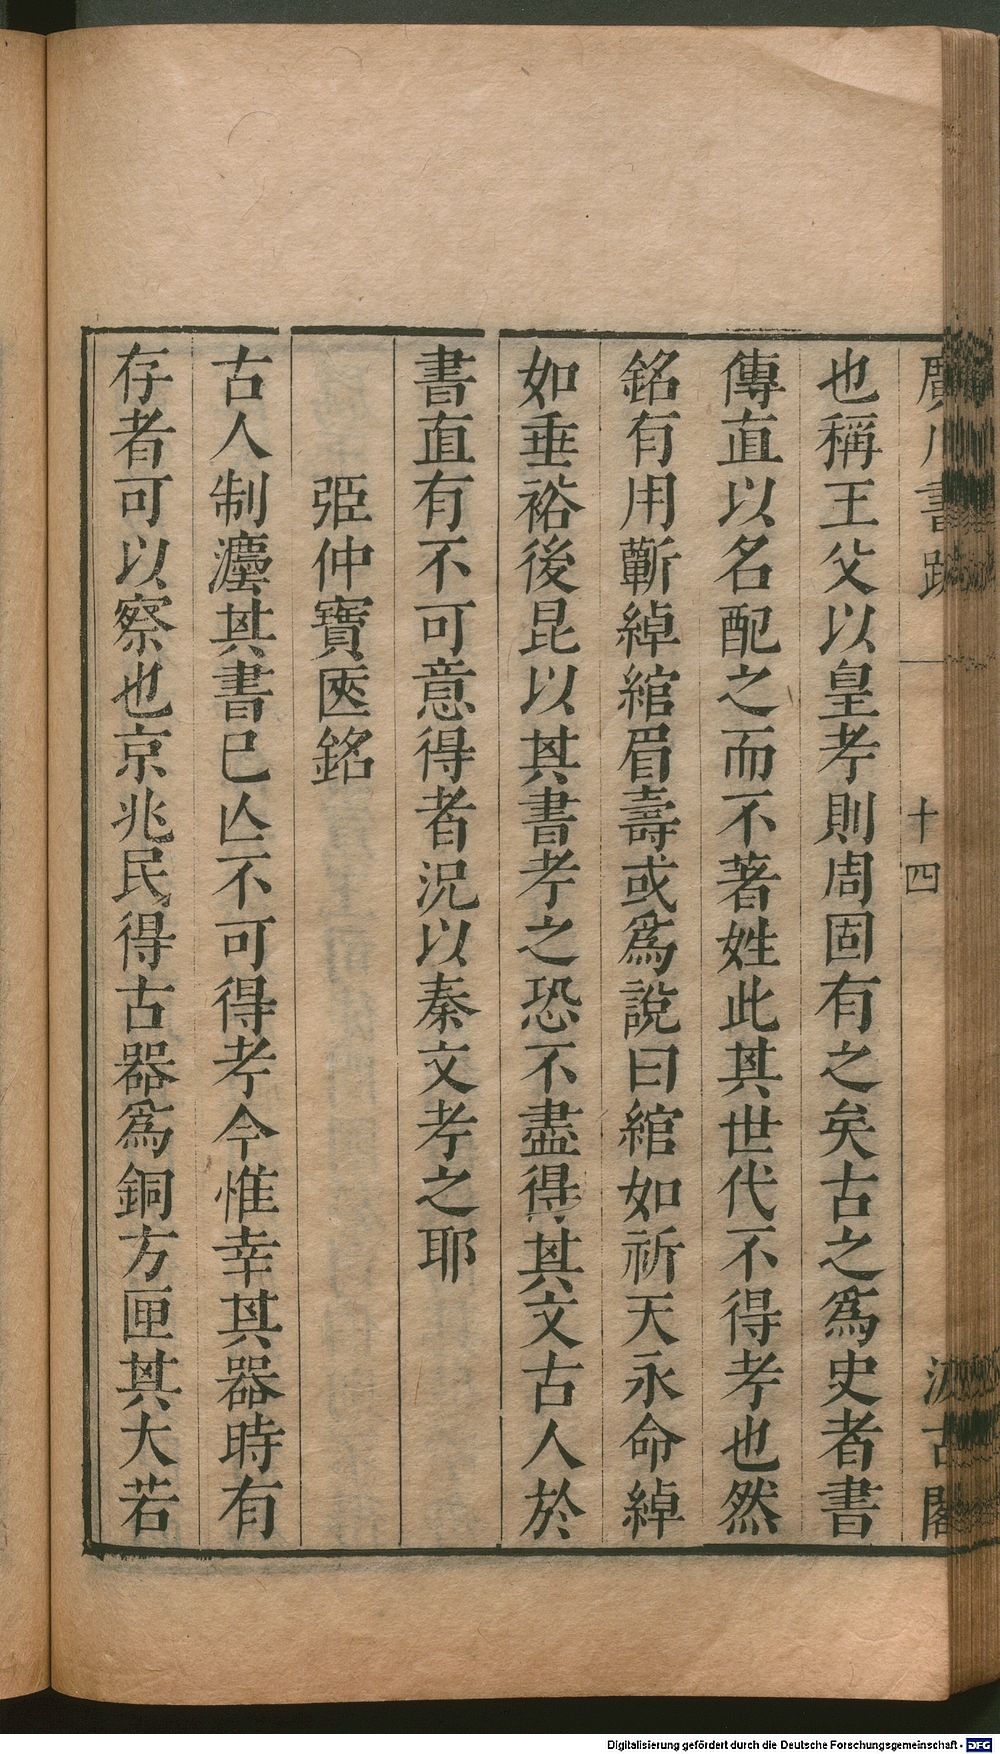 廣川書跋 十四 汲古閣
也稱王父以皇考則周固有之矣古之爲史者書
傳直以名配之而不著姓此其世代不得考也然
銘有用蘄綽綰眉壽或爲說曰綰如祈天永命綽
如垂裕後昆以其書考之恐不盡得其文古人於
書直有不可意得者況以秦文考之耶
弫仲寶匧銘
古人制灋其書已亾不可得考今惟幸其器時有
存者可以察也京兆民得古器爲銅方匣其大若
Digitalisierung gefördert durch die Deutsche Forschungsgemeinschaft - DFG